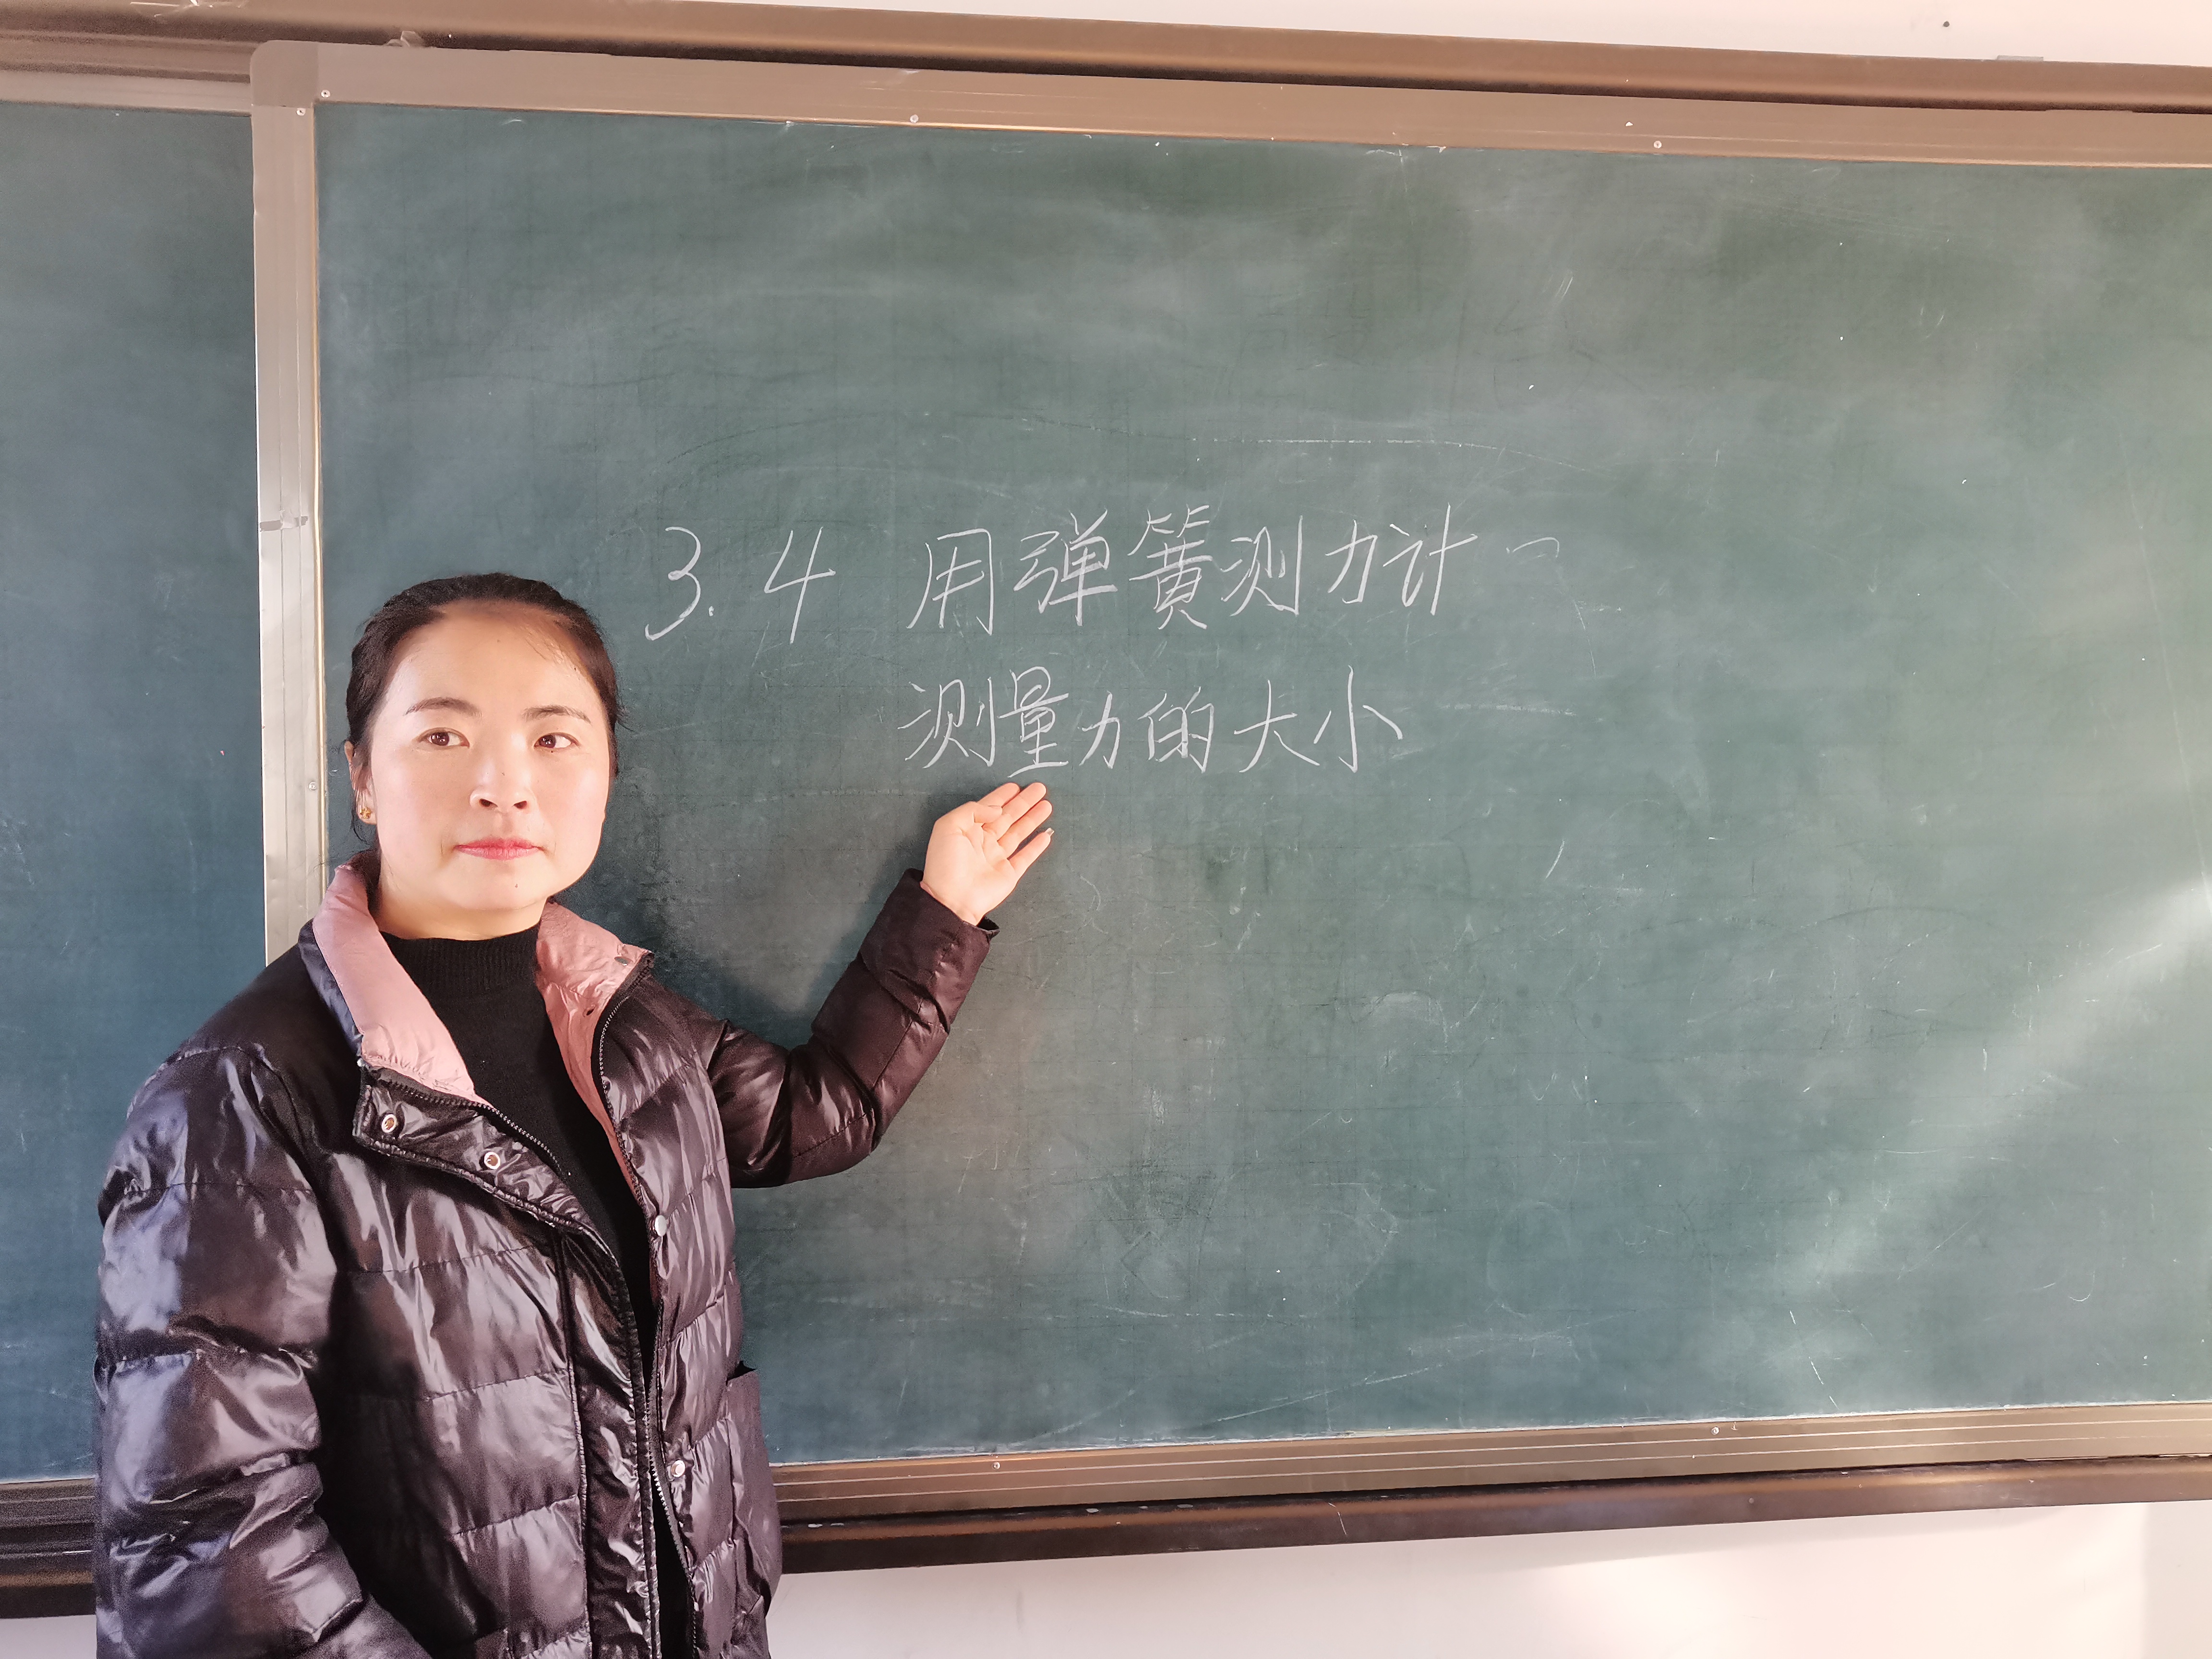 3.4 用弹簧测力计
测量力的大小